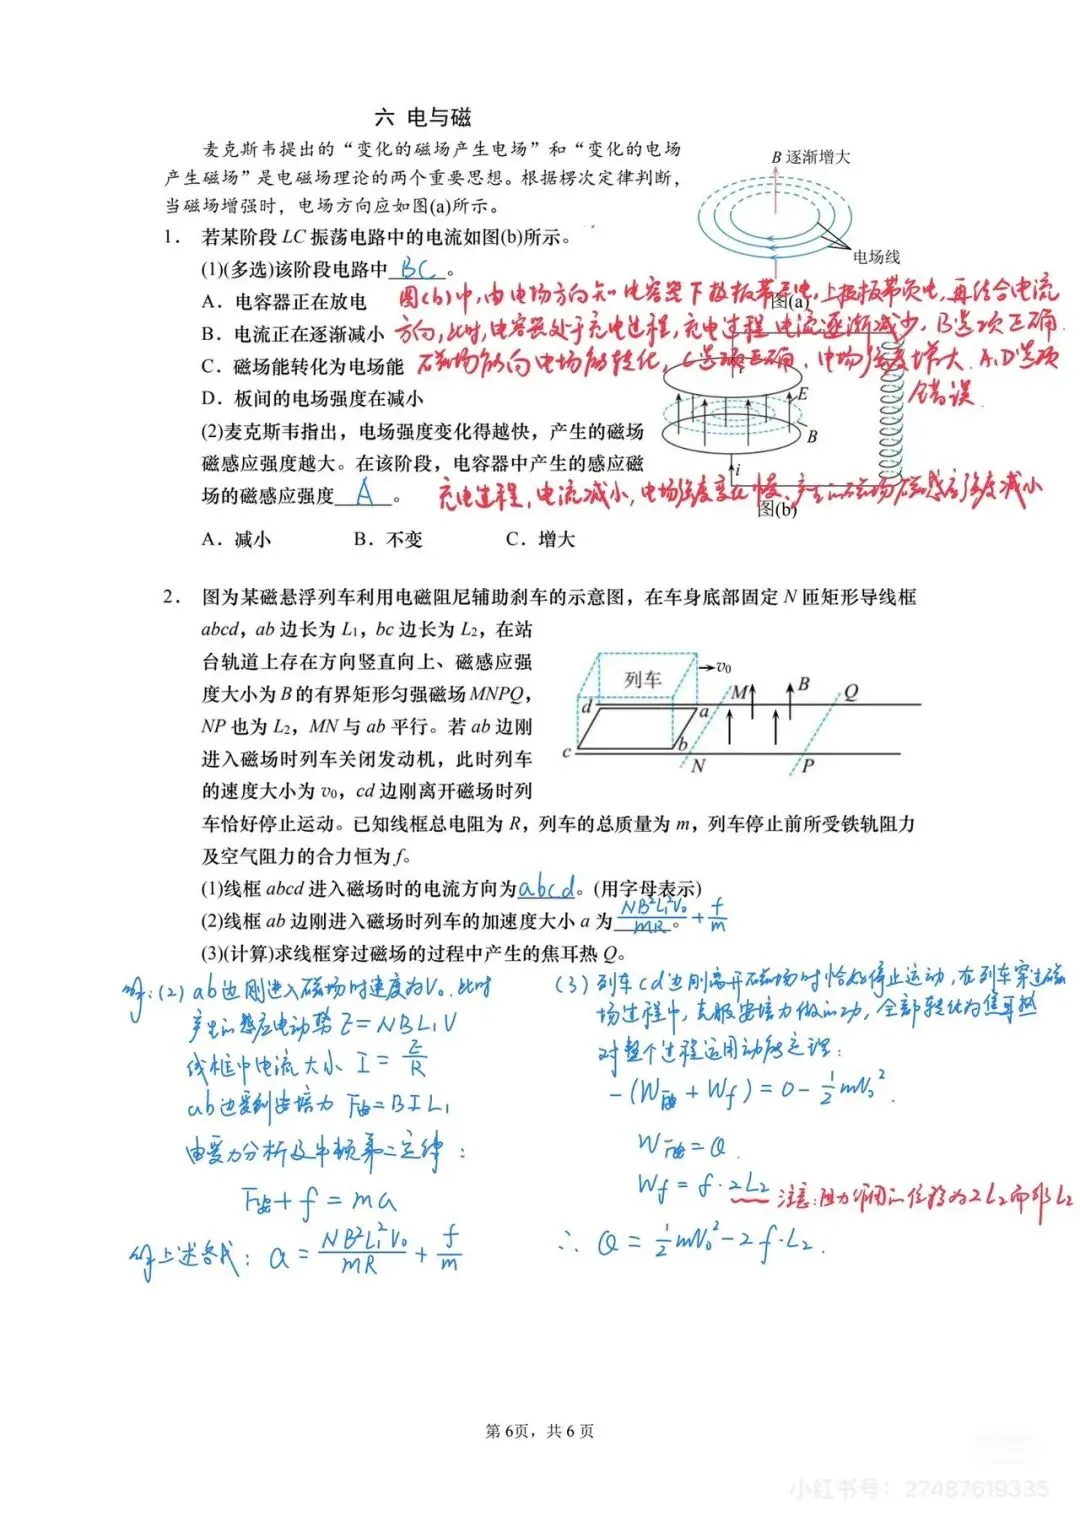 六 电与磁
麦克斯韦提出的“变化的磁场产生电场”和“变化的电场
产生磁场”是电磁场理论的两个重要思想。根据楞次定律判断，
当磁场增强时，电场方向应如图(a)所示。
B 逐渐增大
电场线
图(a)
1. 若某阶段 LC 振荡电路中的电流如图(b)所示。
(1)(多选)该阶段电路中 BC 。
A．电容器正在放电
B．电流正在逐渐减小
C．磁场能转化为电场能
D．板间的电场强度在减小
图(b)中，由电场方向知电容器下极板带正电，上极板带负电，再结合电流
方向，此时，电容器处于充电过程，充电过程电流逐渐减少，B选项正确
磁场能向电场能转化，C选项正确，电场强度增大，A、D选项
错误
E
B
i
图(b)
(2)麦克斯韦指出，电场强度变化得越快，产生的磁场
磁感应强度越大。在该阶段，电容器中产生的感应磁
场的磁感应强度 A 。
充电过程，电流减小，电场强度变化慢，产生的磁场磁感应强度减小
A．减小 B．不变 C．增大
2. 图为某磁悬浮列车利用电磁阻尼辅助刹车的示意图，在车身底部固定 N 匝矩形导线框
abcd，ab 边长为 L₁，bc 边长为 L₂，在站
台轨道上存在方向竖直向上、磁感应强
度大小为 B 的有界矩形匀强磁场 MNPQ，
NP 也为 L₂，MN 与 ab 平行。若 ab 边刚
进入磁场时列车关闭发动机，此时列车
的速度大小为 v₀，cd 边刚离开磁场时列
车恰好停止运动。已知线框总电阻为 R，列车的总质量为 m，列车停止前所受铁轨阻力
及空气阻力的合力恒为 f。
列车 v₀
d a M B Q
c b N P
(1)线框 abcd 进入磁场时的电流方向为 abcd 。(用字母表示)
(2)线框 ab 边刚进入磁场时列车的加速度大小 a 为 NB²L₁²V₀/mR + f/m 。
(3)(计算)求线框穿过磁场的过程中产生的焦耳热 Q。
解：(2) ab边刚进入磁场时速度为V₀，此时
产生的感应电动势 E = NBL₁V
线框中电流大小 I = E/R
ab边受到安培力 F安 = BIL₁
由受力分析及牛顿第二定律：
F安 + f = ma
解上述各式：a = NB²L₁²V₀/mR + f/m
(3) 列车cd边刚离开磁场时恰好停止运动，在列车穿过磁
场过程中，克服安培力做的功，全部转化为焦耳热
对整个过程运用动能定理：
-(W安 + Wf) = 0 - ½mV₀²
W安 = Q
Wf = f·2L₂ 注意：阻力作用的位移为2L₂而非L₂
∴ Q = ½mV₀² - 2f·L₂.
第 6页，共 6 页
小红书号：27487619335